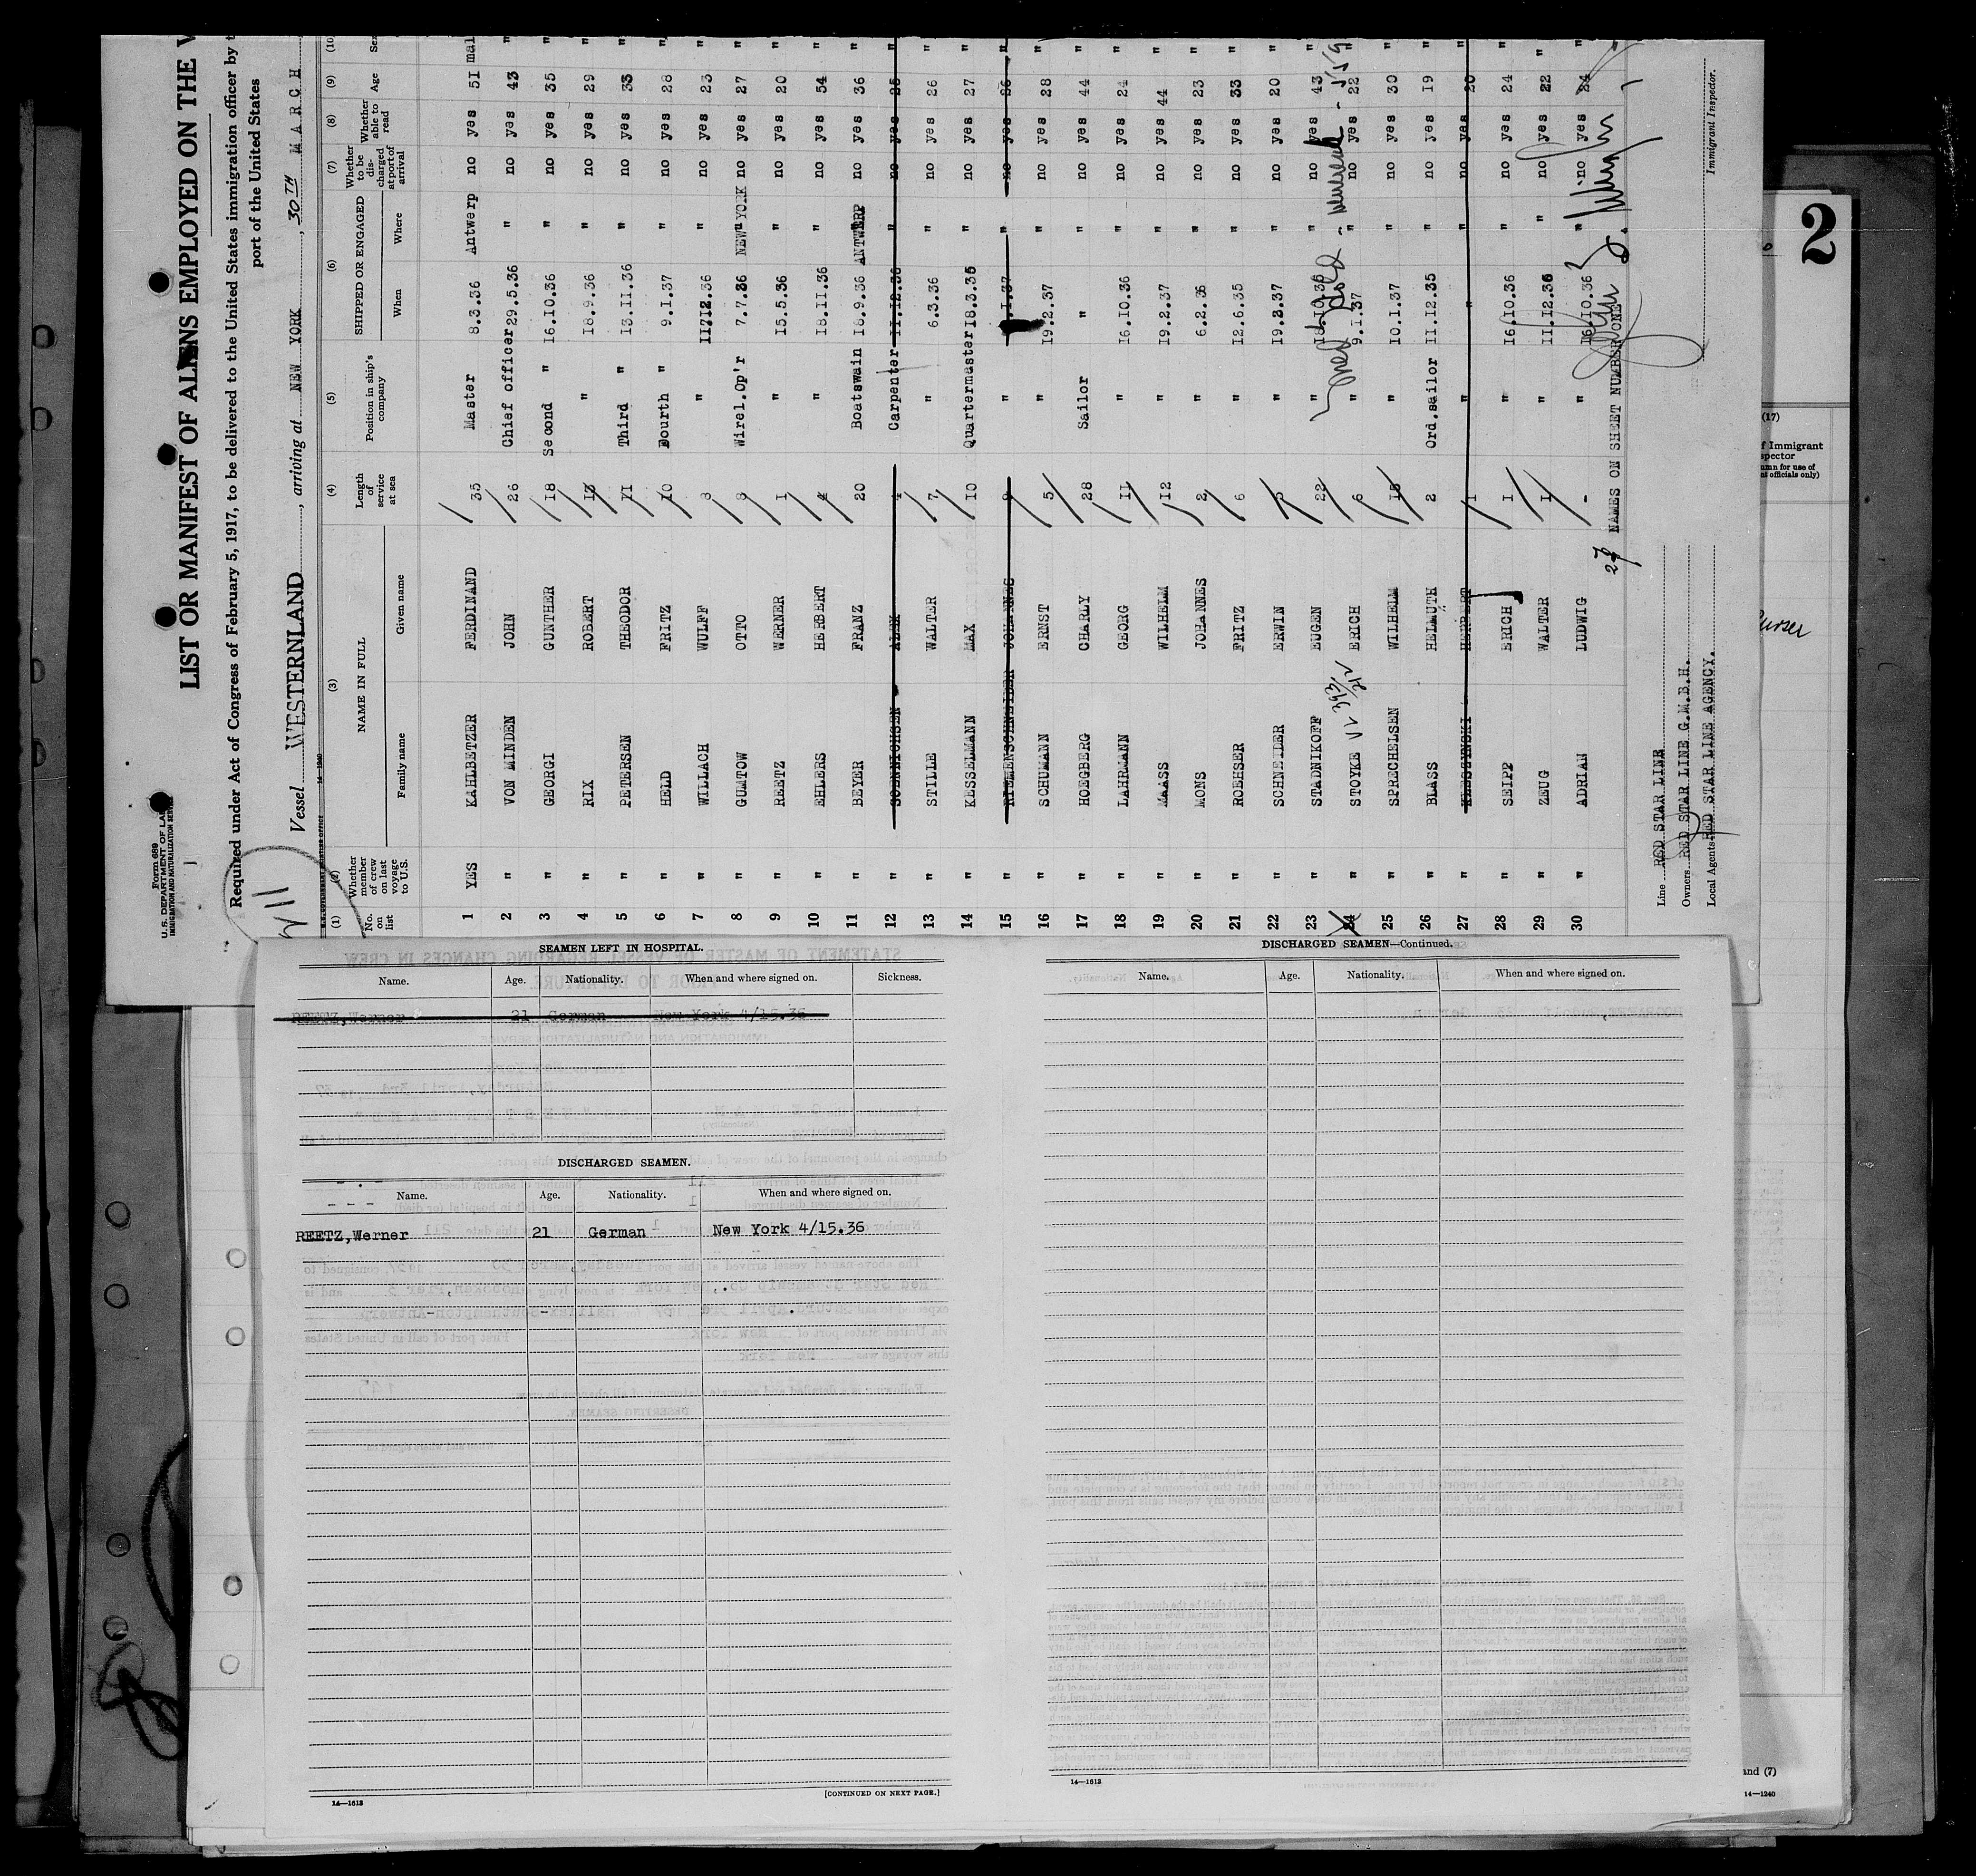 Form 689
U.S. DEPARTMENT OF LA
IMMIGRATION AND NATURALIZATION SERVICE
LIST OR MANIFEST OF ALIENS EMPLOYED ON THE V
Required under Act of Congress of February 5, 1917, to be delivered to the United States immigration officer by t
port of the United States
Vessel WESTERNLAND, arriving at NEW YORK, 30TH MARCH
(1) (2) (3) (4) (5) (6) (7) (8) (9) (10
No. on list Whether member of crew on last voyage to U.S. NAME IN FULL Family name Given name Length of service at sea Position in ship's company SHIPPED OR ENGAGED When Where Whether to be discharged at port of arrival Whether able to read Age Sex
1 YES KAHLBETZER FERDINAND 35 Master 8.3.36 Antwerp no yes 51 mal
2 " VON MINDEN JOHN 26 Chief officer 29.5.36 " no yes 43 "
3 " GEORGI GUNTHER 18 Second " 16.10.36 " no yes 35 "
4 " RIX ROBERT 13 " 18.9.36 " no yes 29 "
5 " PETERSEN THEODOR 11 Third " 13.11.36 " no yes 33 "
6 " HELD FRITZ 10 Fourth " 9.1.37 " no yes 28 "
7 " WILLACH WULFF 3 " 11.12.36 " no yes 23 "
8 " GUMTOW OTTO 8 Wirel.Op'r 7.7.36 NEW YORK no yes 27 "
9 " REETZ WERNER 1 " 15.5.36 " no yes 20 "
10 " EHLERS HERBERT 4 " 18.11.36 " no yes 54 "
11 " BEYER FRANZ 20 Boatswain 18.9.36 ANTWERP no yes 36 "
12 " SOENNICHSEN ALEX 4 Carpenter 11.12.36 " no yes "
13 " STILLE WALTER 7 " 6.3.36 " no yes 26 "
14 " KESSELMANN MAX 10 Quartermaster 18.3.35 " no yes 27 "
15 " RIEMENSCHNEIDER JOHANNES " " no yes "
16 " SCHUMANN ERNST 5 " 19.2.37 " no yes 28 "
17 " HOEGBERG CHARLY 28 Sailor " " no yes 44 "
18 " LAHRMANN GEORG 11 " 16.10.36 " no yes 24 "
19 " MAASS WILHELM 12 " 19.2.37 " no yes 44 "
20 " MONS JOHANNES 2 " 6.2.36 " no yes 23 "
21 " ROEHSER FRITZ 6 " 12.6.35 " no yes 33 "
22 " SCHNEIDER ERWIN " 19.2.37 " no yes 20 "
23 " STADNIKOFF EUGEN 22 " " no yes 43 "
24 " STOYKE ERICH 6 " 9.1.37 " no yes 22 "
25 " SPRECHELSEN WILHELM 15 " 10.1.37 " no yes 30 "
26 " BLASS HELMUTH 2 Ord.sailor 11.12.35 " no yes 19 "
27 " HERBERT 1 " " " no yes 20 "
28 " SEIPP ERICH 1 " 16.10.36 " no yes 24 "
29 " ZEUG WALTER 1 " 11.12.36 " no yes 22 "
30 " ADRIAN LUDWIG - " 16.10.36 " no yes 24 "
27 NAMES ON SHEET NUMBER ONE
Line RED STAR LINE
Owners RED STAR LINE G.M.B.H.
Local Agents RED STAR LINE AGENCY.
Immigrant Inspector.
2
(17)
f Immigrant
spector
umn for use of
nt officials only)
Purser
and (7)
14—1240
SEAMEN LEFT IN HOSPITAL.
Name. Age. Nationality. When and where signed on. Sickness.
REETZ,Werner 21 German New York 4/15.36
DISCHARGED SEAMEN.
Name. Age. Nationality. When and where signed on.
REETZ,Werner 21 German New York 4/15.36
14—1613
[CONTINUED ON NEXT PAGE.]
DISCHARGED SEAMEN—Continued.
Name. Age. Nationality. When and where signed on.
14—1613